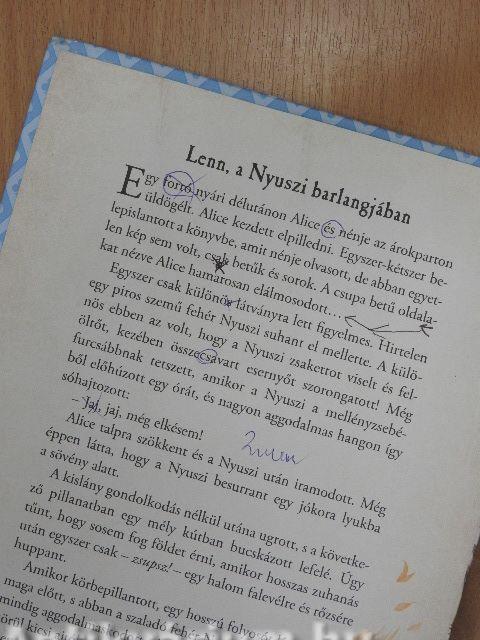 Lenn, a Nyuszi barlangjában
Egy forró nyári délutánon Alice és nénje az árokparton
üldögélt. Alice kezdett elpilledni. Egyszer-kétszer be-
lepislantott a könyvbe, amit nénje olvasott, de abban egyet-
len kép sem volt, csak betűk és sorok. A csupa betű oldala-
kat nézve Alice hamarosan elálmosodott...
Egyszer csak különös látványra lett figyelmes. Hirtelen
egy piros szemű fehér Nyuszi suhant el mellette. A külö-
nös ebben az volt, hogy a Nyuszi zsakettot viselt és fel-
öltőt, kezében összecsavart esernyőt szorongatott! Még
furcsábbnak tetszett, amikor a Nyuszi a mellényzsebé-
ből előhúzott egy órát, és nagyon aggodalmas hangon így
sóhajtozott:
– Jaj, jaj, még elkésem!
Alice talpra szökkent és a Nyuszi után iramodott. Még
éppen látta, hogy a Nyuszi besurrant egy jókora lyukba
a sövény alatt.
A kislány gondolkodás nélkül utána ugrott, s a követke-
ző pillanatban egy mély kútban bucskázott lefelé. Úgy
tűnt, hogy sosem fog földet érni, amikor hosszas zuhanás
után egyszer csak – zsupsz! – egy halom falevélre és rőzsére
huppant.
Amikor körbepillantott, egy hosszú folyosót
maga előtt, s abban a szaladó fehér
mindig aggodalmaskodó